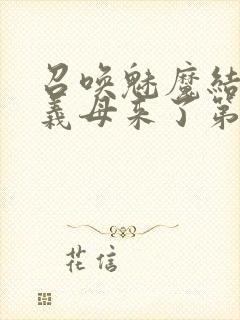 召唤魅魔结
义母来了第
花信